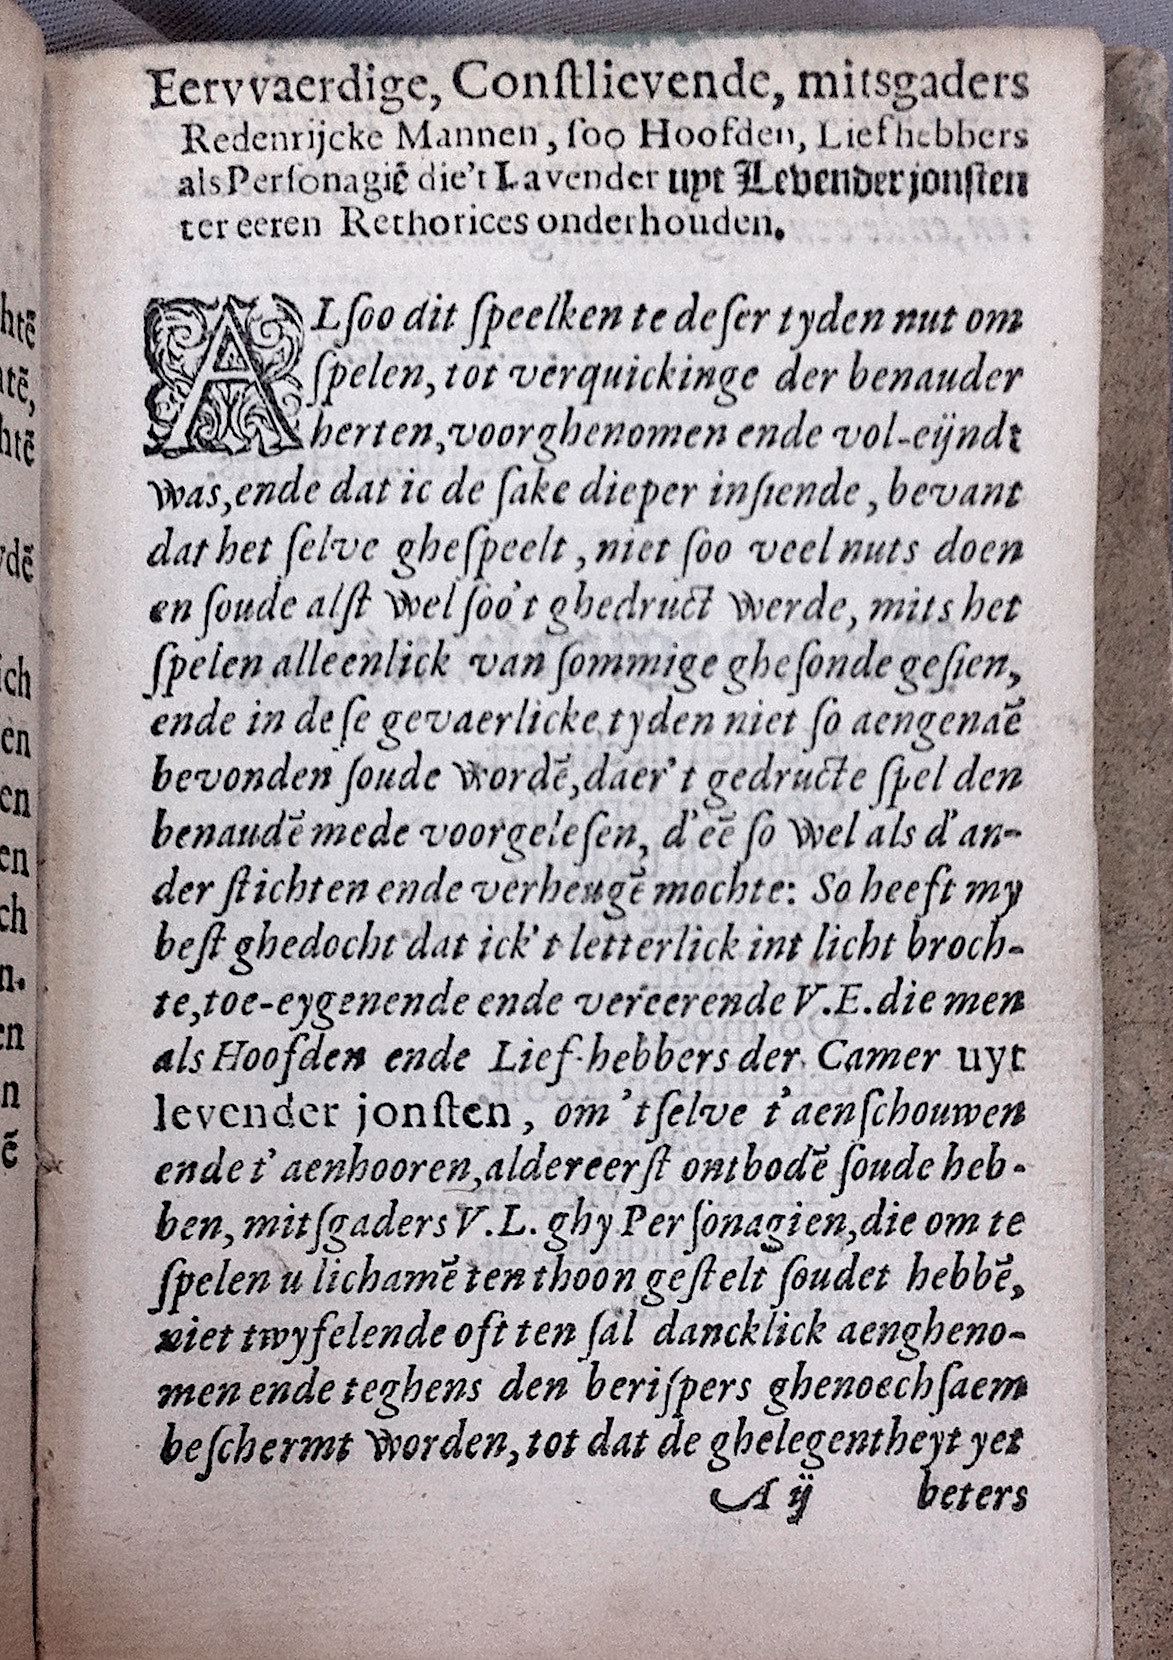 Eervvaerdige, Conſtlievende, mitsgaders
Redenrijcke Mannen, ſoo Hoofden, Liefhebbers
als Perſonagiē die't Lavender uyt Levender jonſten
ter eeren Rethorices onderhouden.
ALſoo dit ſpeelken te deſer tyden nut om
ſpelen, tot verquickinge der benauder
herten, voorghenomen ende vol-eijndt
was, ende dat ic de ſake dieper inſiende, bevant
dat het ſelve gheſpeelt, niet ſoo veel nuts doen
en ſoude alſt wel ſoo't ghedruct werde, mits het
ſpelen alleenlick van ſommige gheſonde geſien,
ende in deſe gevaerlicke tyden niet ſo aengenaē
bevonden ſoude wordē, daer't gedructe ſpel den
benaudē mede voorgeleſen, d'eē ſo wel als d'an-
der ſtichten ende verheugē mochte: So heeft my
beſt ghedocht dat ick't letterlick int licht broch-
te, toe-eygenende ende vereerende V.E. die men
als Hoofden ende Lief-hebbers der Camer uyt
levender jonſten, om 't ſelve t'aenſchouwen
ende t'aenhooren, aldereerſt ontbodē ſoude heb-
ben, mitſgaders V.L. ghy Perſonagien, die om te
ſpelen u lichamē ten thoon geſtelt ſoudet hebbē,
niet twyfelende oft ten ſal dancklick aengheno-
men ende teghens den beriſpers ghenoechſaem
beſchermt worden, tot dat de ghelegentheyt yet
A ij beters
htē
tē,
htē
dē
ich
en
en
en
ch
n.
en
n
ē